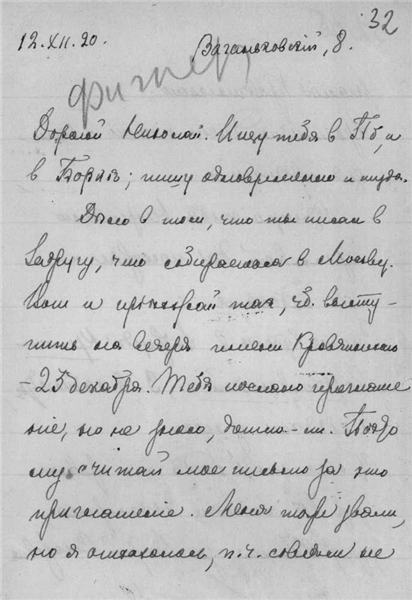 32
12.XII.20. Ваганьковскій, 8.
фигнер
Дорогой Николай. Ищу тебя в Пб, и
в Борках; пишу одновременно и туда.
Дело в том, что ты писал в
Задругу, что собираешься в Москву.
Вот и приезжай так, чб. высту-
пить на вечере памяти
– 25 декабря. Тебя послано приглаше
ние, но не знаю, дошло-ли. Поэто
му читай мое письмо за это
приглашение. Меня тоже звали,
но я отказалась, п.ч. совсем не